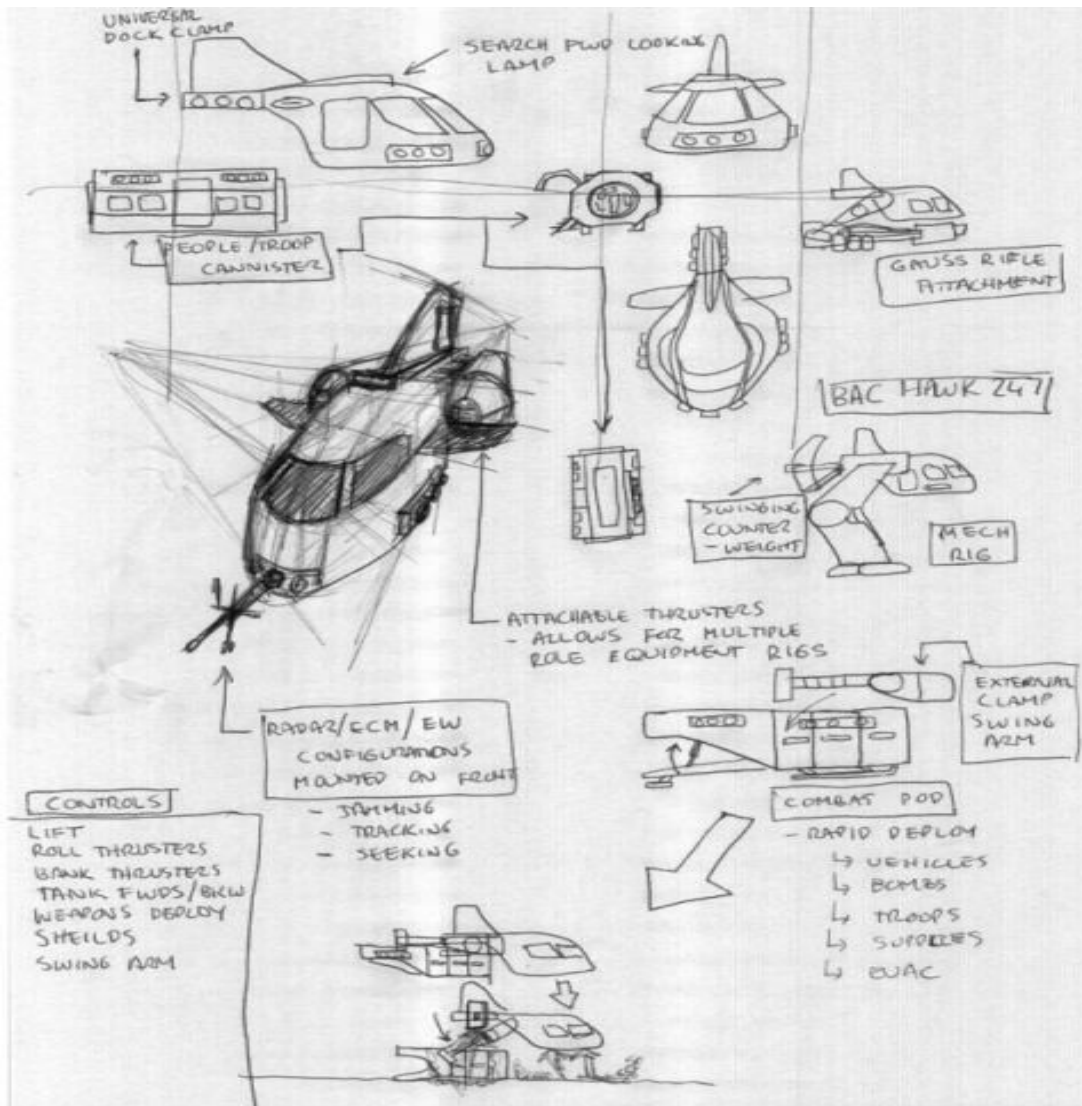 UNIVERSAL
DOCK CLAMP
SEARCH FWD LOOKING
LAMP
PEOPLE/TROOP
CANNISTER
GAUSS RIFLE
ATTACHMENT
BAC HAWK 247
SWINGING
COUNTER
- WEIGHT
MECH
RIG
ATTACHABLE THRUSTERS
- ALLOWS FOR MULTIPLE
ROLE EQUIPMENT RIGS
EXTERNAL
CLAMP
SWING
ARM
RADAR/ECM/EW
CONFIGURATIONS
MOUNTED ON FRONT
- JAMMING
- TRACKING
- SEEKING
COMBAT POD
- RAPID DEPLOY
↳ VEHICLES
↳ BOMBS
↳ TROOPS
↳ SUPPLIES
↳ EVAC
CONTROLS
LIFT
ROLL THRUSTERS
BANK THRUSTERS
TANK FWDS/BKW
WEAPONS DEPLOY
SHEILDS
SWING ARM